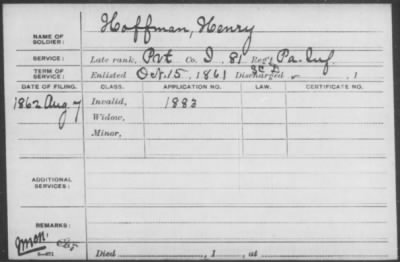 Hoffman, Henry
NAME OF SOLDIER:
SERVICE: Late rank, Pvt Co. I, 81 Reg't Pa. Inf.
TERM OF SERVICE: Enlisted Oct. 15, 1861 Discharged , 1
DATE OF FILING. CLASS. APPLICATION NO. LAW. CERTIFICATE NO.
1862 Aug 7 Invalid, 1883
Widow,
Minor,
ADDITIONAL SERVICES:
REMARKS:
Died , 1 , at